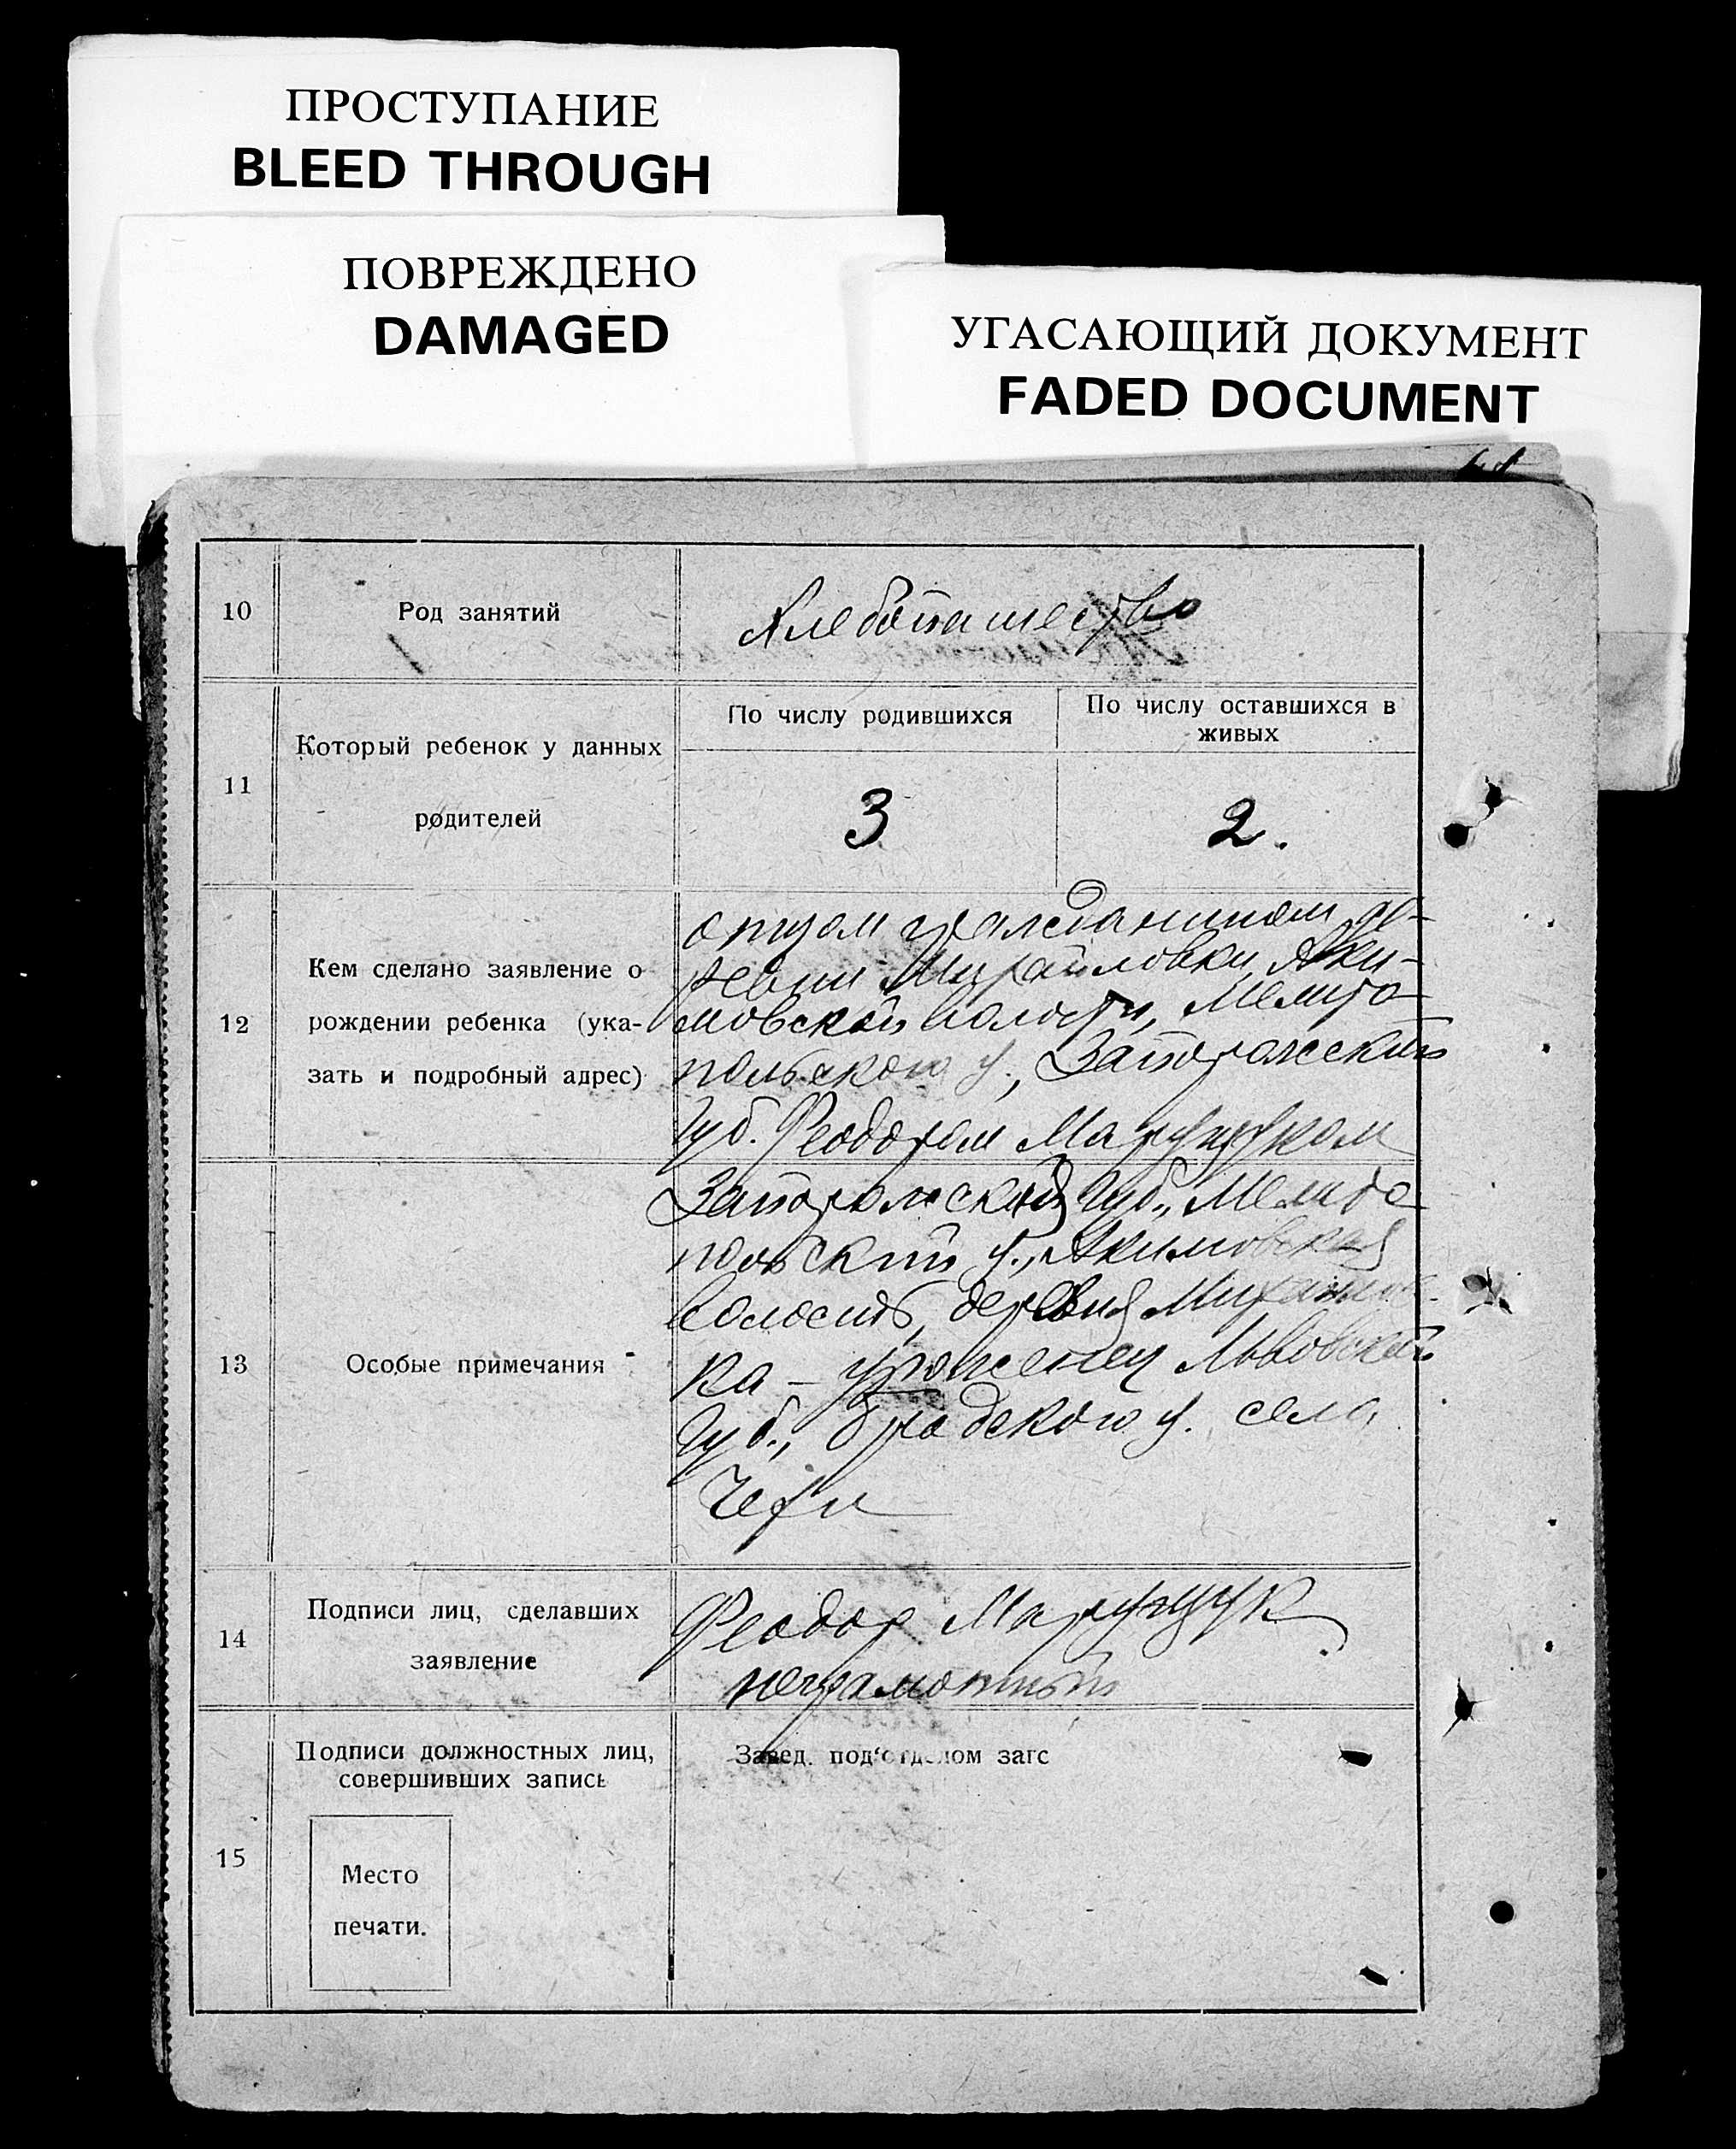 ПРОСТУПАНИЕ
BLEED THROUGH
ПОВРЕЖДЕНО
DAMAGED
УГАСАЮЩИЙ ДОКУМЕНТ
FADED DOCUMENT
10
Род занятий
Хлебопашество
11
Который ребенок у данных
родителей
По числу родившихся
По числу оставшихся в
живых
3
2.
12
Кем сделано заявление о
рождении ребенка (ука-
зать и подробный адрес)
отцом гражданином де-
ревни Михайловки, Аки-
мовской волости, Мелито
польского у., Запорожской
губ. Феодором Марущуком
13
Особые примечания
Запорожской губ., Мелито
польский у., Акимовская
волость, деревня Михайлов-
ка – уроженец Львовской
губ., Бродского у. села
14
Подписи лиц, сделавших
заявление
Феодор Марущук
неграмотный
15
Подписи должностных лиц,
совершивших запись
Место
печати.
Завед. под'отделом загс